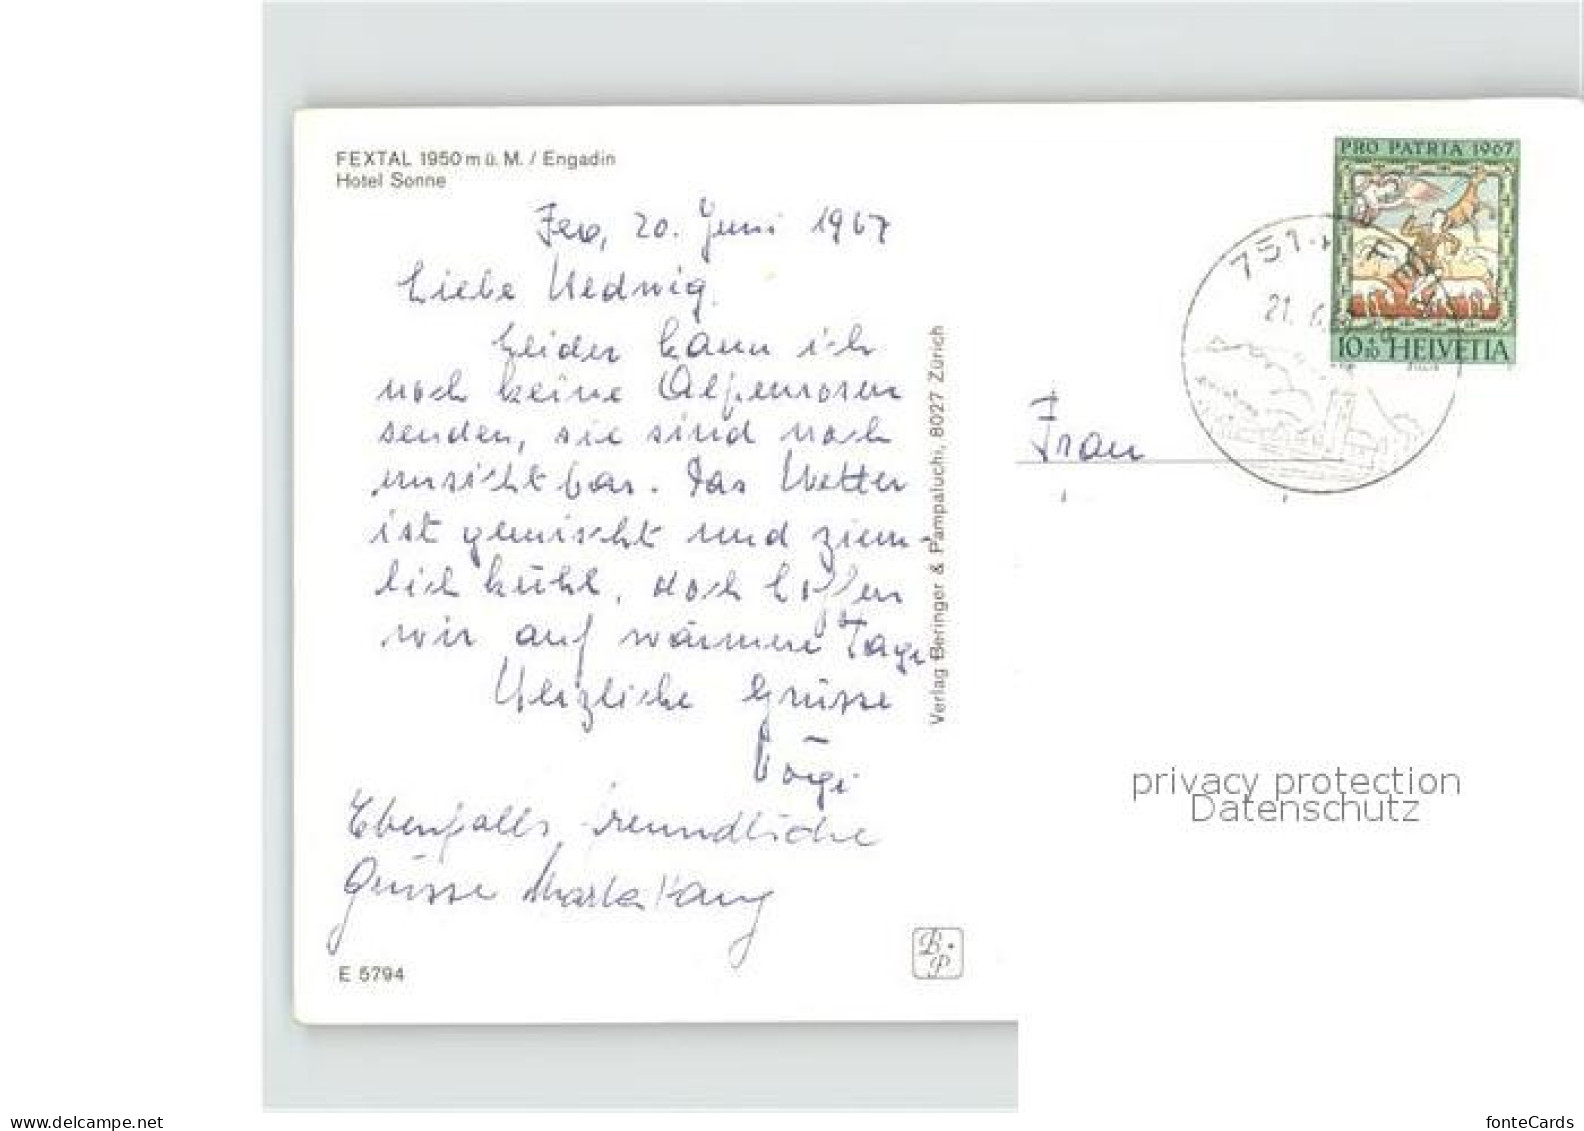 FEXTAL 1950 m ü. M. / Engadin
Hotel Sonne
Fex, 20. Juni 1967
Liebe Hedwig.
Leider kann ich
noch keine Alpenrosen
senden, sie sind noch
unsichtbar. Das Wetter
ist gemischt und ziem-
lich kühl, doch hoffen
wir auf wärmere Tage
Herzliche Grüsse
Vögi
Ebenfalls freundliche
Grüsse
E 5794
B P
Verlag Beringer & Pampaluchi, 8027 Zürich
PRO PATRIA 1967
10+10 HELVETIA
751
FEX
21. 6.
Frau
privacy protection
Datenschutz
www.delcampe.net
fonteCards